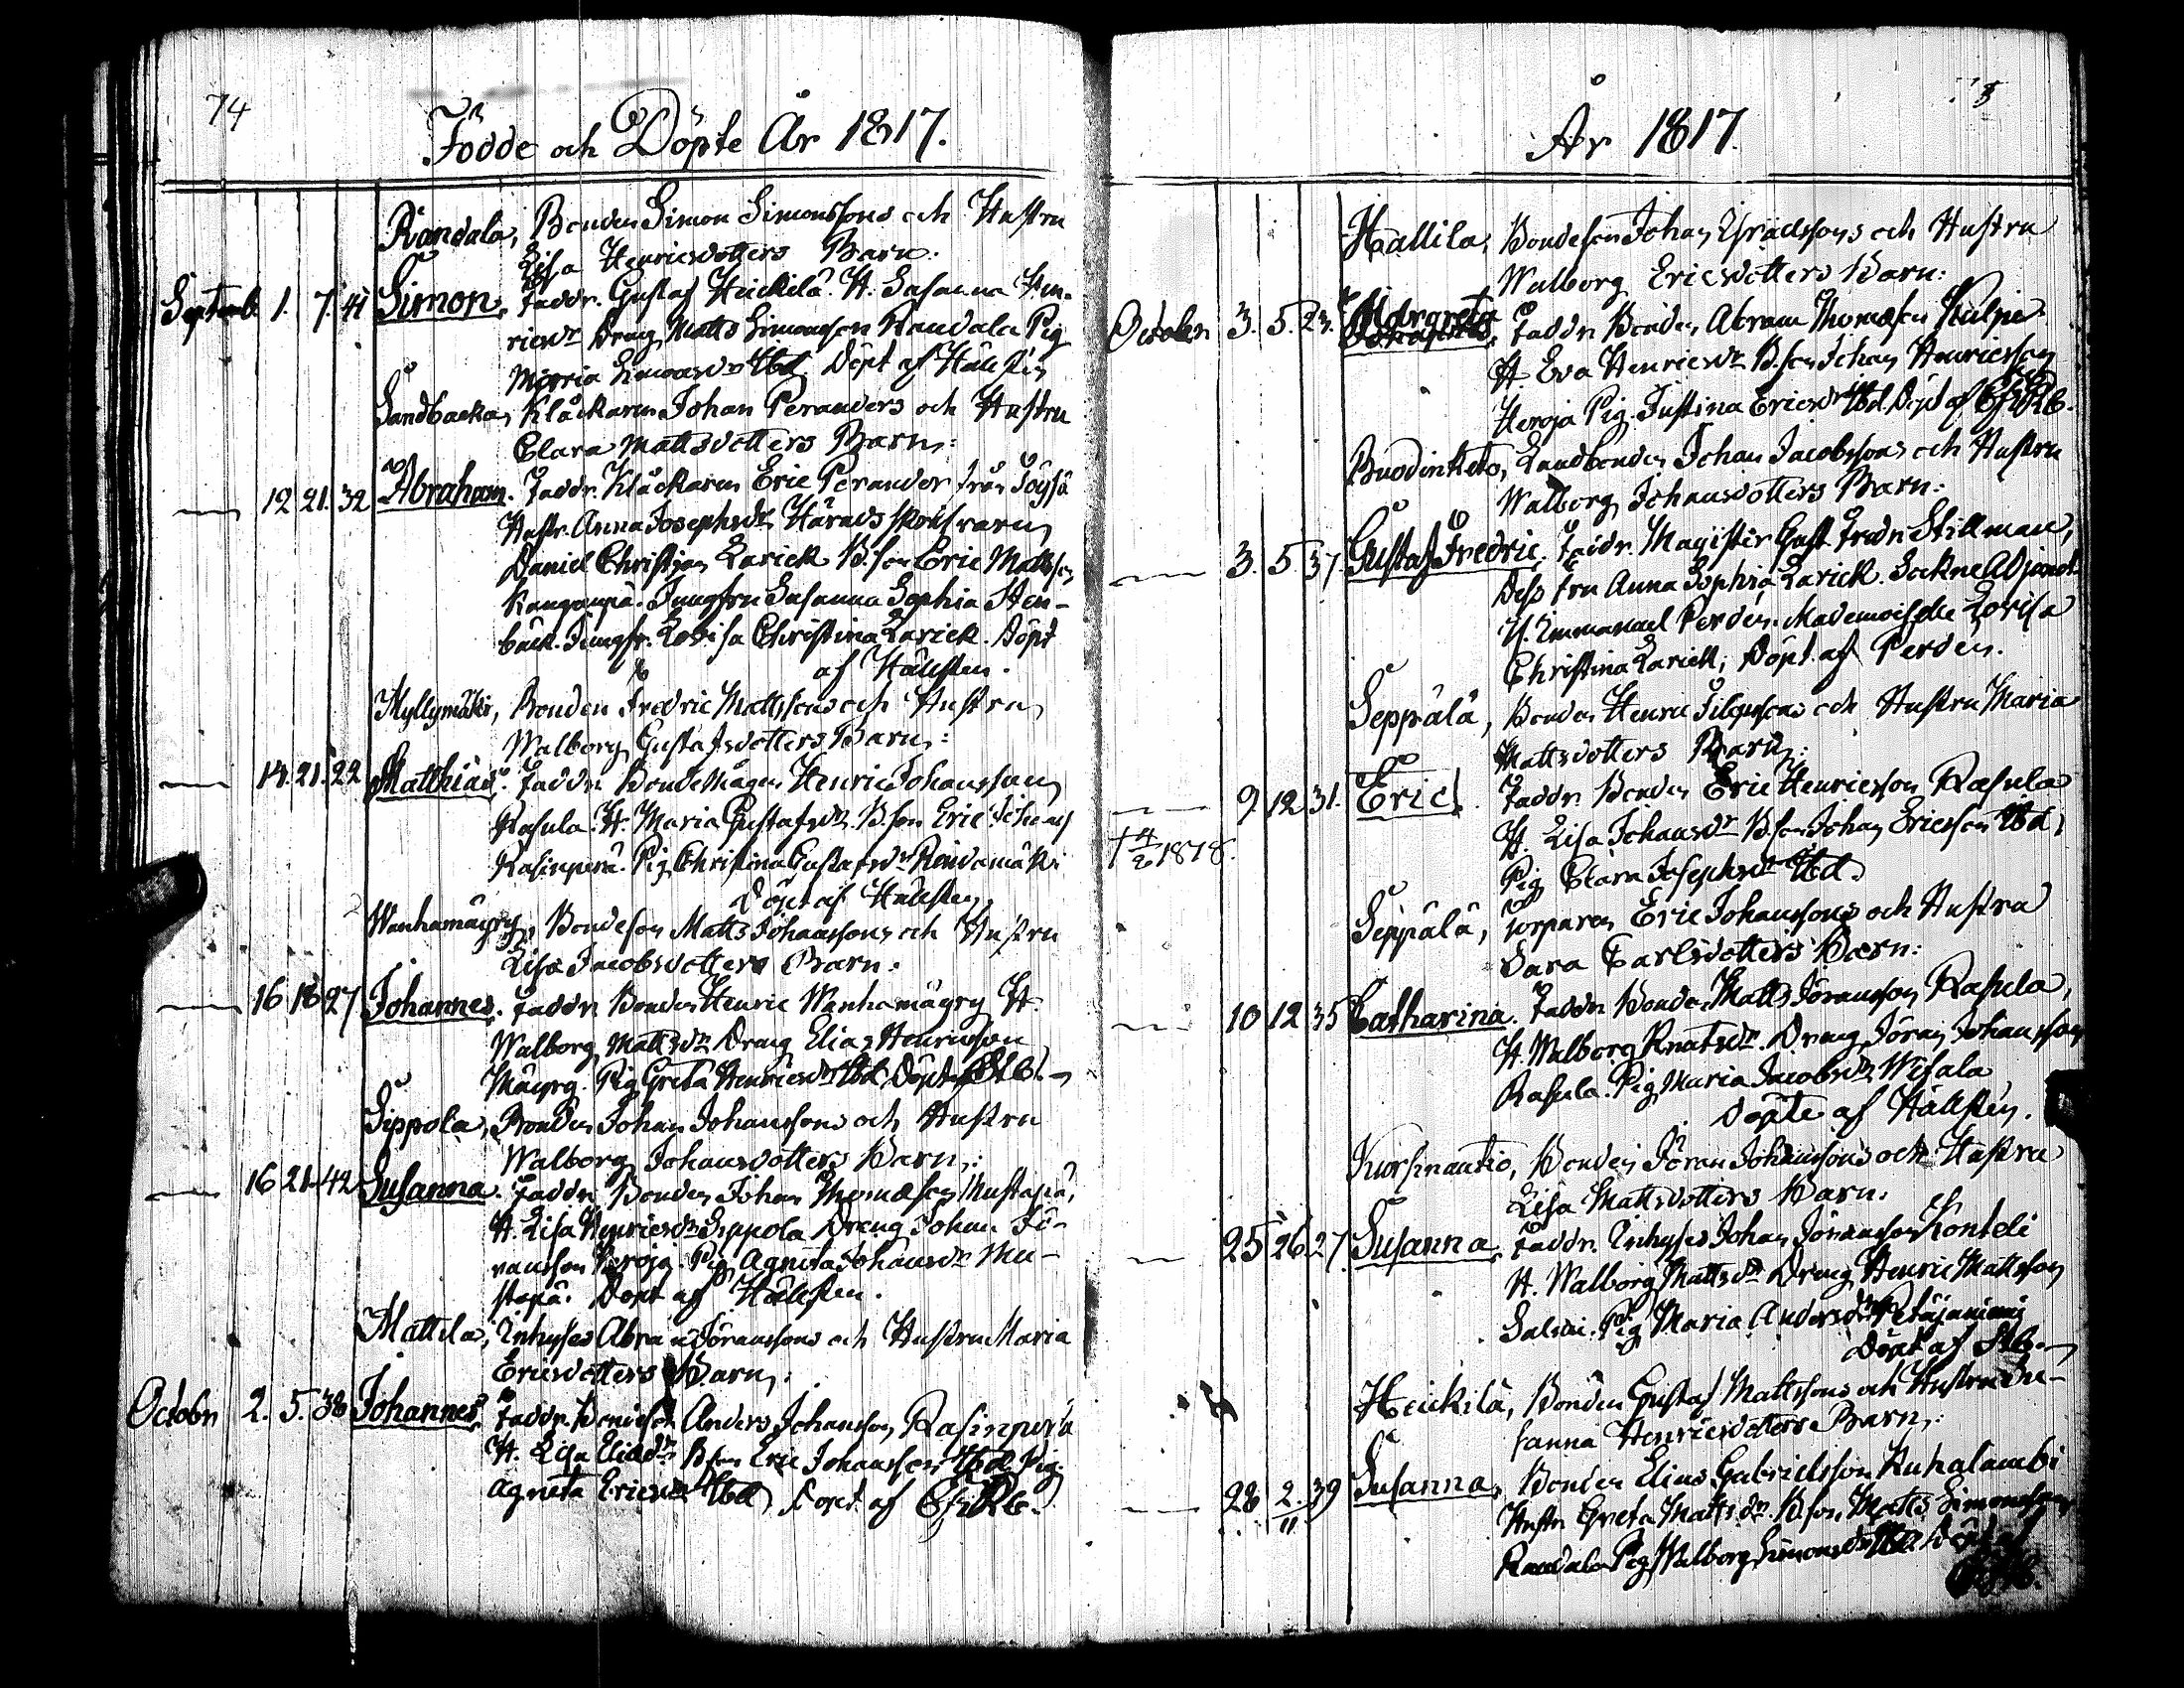 74
Födde och Döpte År 1817.
Randala, Bonden Simon Simonssons och Hustru
Lisa Henricsdotters Barn:
Septemb. 1. 7. 41 Simon, Faddr. Gustaf Heickilä. H. Susanna Hen-
ricsdr Dreng Matts Simonsson Randala Pig
Maria Simonsdr Ibd. Döpt af Hällsten
Sandbacka, Klåckaren Johan Peranders och Hustru
Clara Mattsdotters Barn:
12 21. 32 Abraham. Faddr. Klåckaren Eric Perander från Töysä
Hustr. Anna Josephsdr Härads
Daniel Christian Larick B.son Eric Mattsson
Kangaspä. Jungfru Susanna Sophia Hen-
bäck. Jungfr. Lovisa Christina Larick. Döpt
af Hällsten.
Myllymäki, Bonden Fredric Mattssons och Hustru
Walborg Gustafsdotters Barn:
14. 21. 22 Matthias. Faddr. Bondemågen Henric Johansson
Rasula. H. Maria Gustafsdr. B.son Eric Johans
Rasinperä. Pig. Christina Gustafsdr Rindamäki
Döpt af Hällsten
Wanhamäyry, Bondeson Matts Johanssons och Hustru
Lisa Jacobsdotters Barn:
16 18 27 Johannes. Faddr. Bonden Henric Wanhamäyry H.
Walborg Mattsdr. Dreng Elias Henricsson
Mäyry. Pig Greta Henricsdr Ibd. Döpt af
Sippola, Bonden Johan Johanssons och Hustru
Walborg Johansdotters Barn:
16 21 42 Susanna. Faddr. Bonden Johan Thomasson Mustapä,
H. Lisa Henricsdr Sippola Dreng Johan Jö-
ransson Heroja. Pig Agneta Johansdr Mu-
stapä. Döpt af Hällsten.
Mattila, Inhyses Abram Jöranssons och Hustru Maria
Ericsdotters Barn:
Octobr 2. 5. 38 Johannes, Faddr. Bondeson Anders Johansson Rasinperä
H. Lisa Eliaedr B.son Eric Johansson Ibd. Pig.
Agneta Ericsdr Ibd. Döpt af
År 1817.
Hallila, Bondeson Johan Israelssons och Hustru
Walborg Ericsdotters Barn:
October 3. 5. 23. Margreta Faddr. Bonden Abram Thomasson Kulpe
H. Eva Henricsdr B.son Johan Henricsson
Heroja Pig. Justina Ericsdr Ibd. Döpt af
Ruodinketo, Landbonden Johan Jacobssons och Hustru
Walborg Johansdotters Barn:
3. 5 37 Gustaf Fredric. Faddr. Magister Gust. Fredr. Stillman,
Dess fru Anna Sophia Larick. Sockne Adjunct.
H. Immanuel Perdén. Mademoiselle Lovisa
Christina Larick; Döpt af Perdén.
Seppälä, Bonden Henric Filpussons och Hustru Maria
Mattsdotters Barn:
9 12 31. Eric. Faddr. Bonden Eric Henricsson Rasula
H. Lisa Johansdr B.son Johan Ericsson Ibd.
† 4/2 1878.
Pig Clara Josephsdr Ibd.
Seppälä, Torparen Eric Johanssons och Hustru
Sara Carlsdotters Barn:
10 12 35 Catharina. Faddr. Bonden Matts Jöransson Rasula,
H. Walborg Knutsdr. Dreng Jöran Johansson
Rasula. Pig Maria Jacobsdr Wisala
Döpte af Hällsten.
Kuorinautio, Bonden Jöran Johanssons och Hustru
Lisa Mattsdotters Barn:
25 26. 27 Susanna, Faddr. Inhyses Johan Jöransson Konteli
H. Walborg Mattsdr Dreng Henric Mattsson
Salmi. Pig Maria Andersdr Petäjaniemi
Döpt af
Heickilä, Bonden Gustaf Mattssons och Hustru Su-
sanna Henricsdotters Barn:
28 2/11 39 Susanna, Bonden Elias Gabrielsson Ruhalambi
Hustr Greta Mattsdr. B.son Matts Simonsson
Randala Pig Walborg Simonsdr Ibd. Döpt af